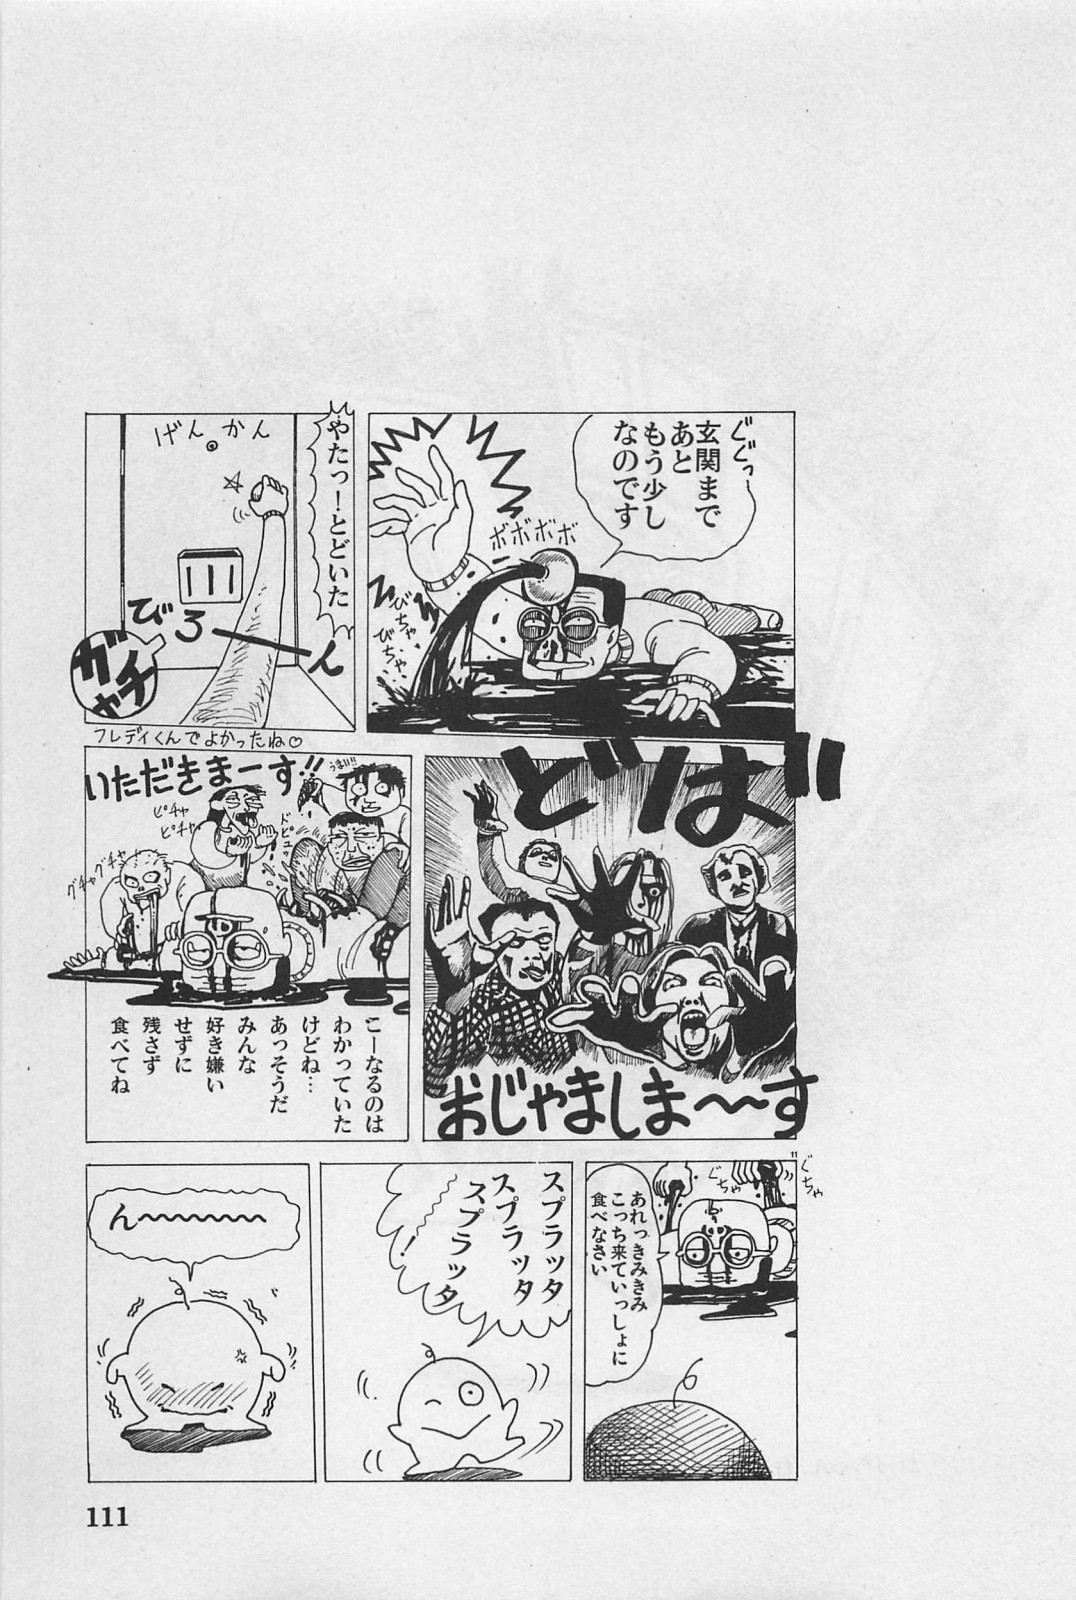 ぐぐっ
玄関まで
あと
もう少し
なのです
ボボボボ
びちゃ
びちゃ
やたっ!とどいた
げんかん
びろーん
ガチャ
フレディくんでよかったね♡
どばっ
おじゃましま〜〜す
いただきまーす!!
うまい!!
ピチャ
ピチャ
ドピュ
グチャグチャ
こーなるのは
わかっていた
けどね…
あっそうだ
みんな
好き嫌い
せずに
残さず
食べてね
ぐちゃ
ぐちゃ
あれっきみきみ
こっち来ていっしょに
食べなさい
スプラッタ
スプラッタ
スプラッタ
〜〜〜!
ん〜〜〜〜〜〜
111